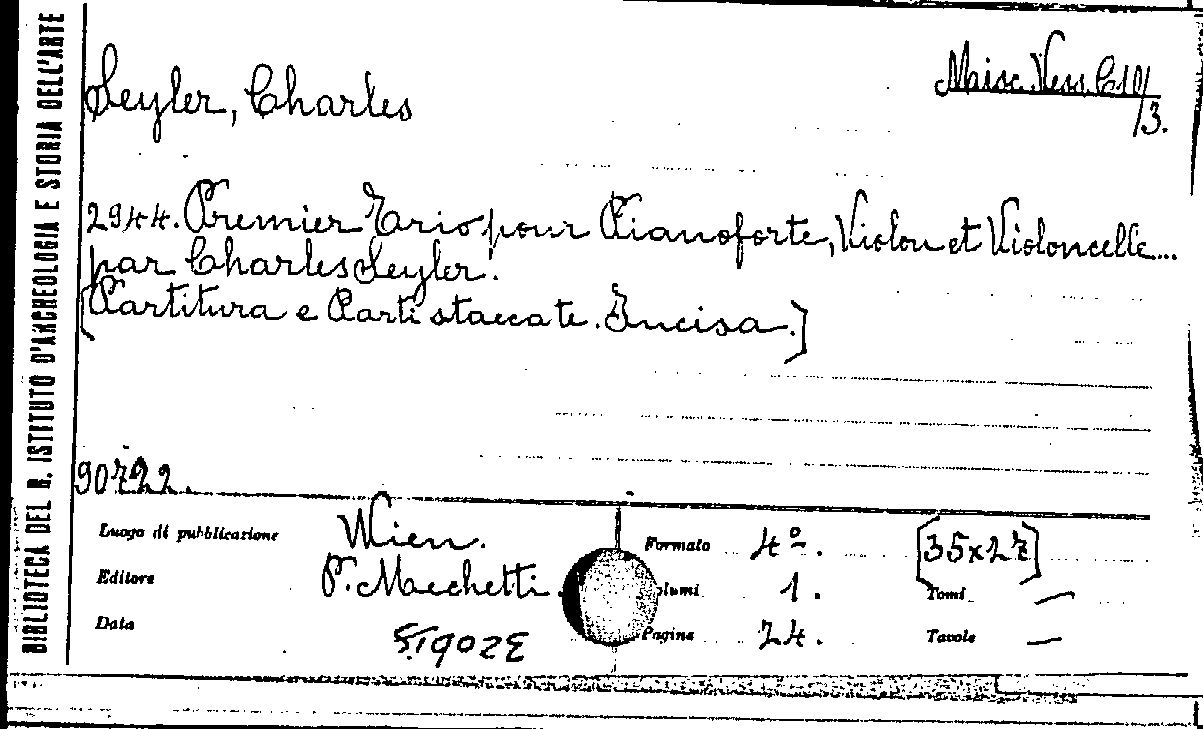 BIBLIOTECA DEL R. ISTITUTO D'ARCHEOLOGIA E STORIA DELL'ARTE
Seyler, Charles
Misc. Vess. C10/
/3.
2944. Premier Trio pour Pianoforte, Violon et Violoncelle...
par Charles Seyler.
[Partitura e Parti staccate. Incisa.]
90722.
Luogo di pubblicazione Wien.
Formato 4º. [35x27]
Editore P. Mecchetti.
lumi 1. Tomi —
Data
Pagine 24. Tavole —